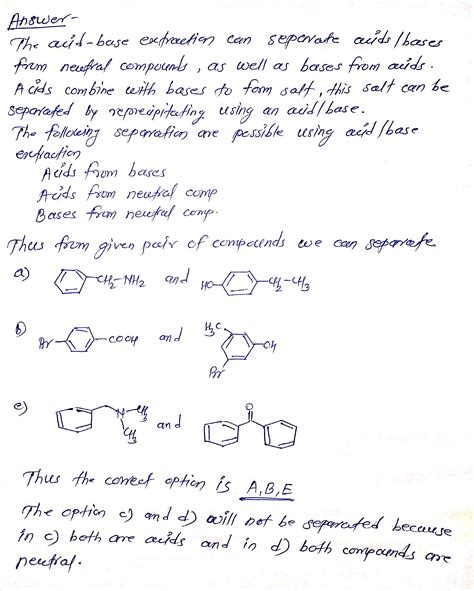 Answer-
The acid-base extraction can seperate acids/bases
from neutral compounds, as well as bases from acids.
Acids combine with bases to form salt, this salt can be
separated by reprecipitating using an acid/base.
The following separation are possible using acid/base
extraction
Acids from bases
Acids from neutral comp
Bases from neutral comp.
Thus from given pair of compounds we can separate
a) CH2-NH2 and HO CH2-CH3
b) Br COOH and H3C OH
Br
e) N-CH3 and O
CH3
Thus the correct option is A,B,E
The option c) and d) will not be separated because
in c) both are acids and in d) both compounds are
neutral.